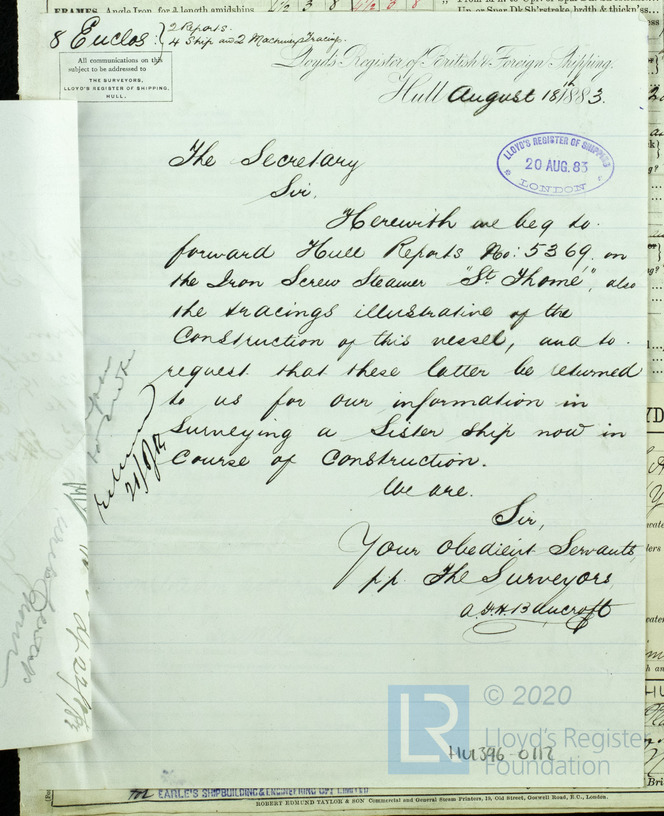 FRAMES, Angle Iron, for ¾ length amidships
8 Enclos: { 2 Reports.
4 Ship and 2 Machinery Tracings.
All communications on this
subject to be addressed to
THE SURVEYORS,
LLOYD'S REGISTER OF SHIPPING,
HULL.
Lloyd's Register of British & Foreign Shipping.
Hull August 18th 1883.
LLOYD'S REGISTER OF SHIPPING
20 AUG. 83
LONDON
The Secretary
Sir,
Herewith we beg to
forward Hull Reports No: 5369 on
the Iron Screw Steamer "St Thomé", also
the tracings illustrative of the
Construction of this vessel, and to
request that these latter be returned
to us for our information in
Surveying a Sister ship now in
Course of Construction.
We are.
Sir,
Your Obedient Servants
pp. The Surveyors
A.F.H. Bancroft
© 2020
LR
Lloyd's Register
Foundation
HUL396-0112
for EARLE'S SHIPBUILDING & ENGINEERING CPY LIMITED
ROBERT EDMUND TAYLOR & SON Commercial and General Steam Printers, 19, Old Street, Goswell Road, E C., London.